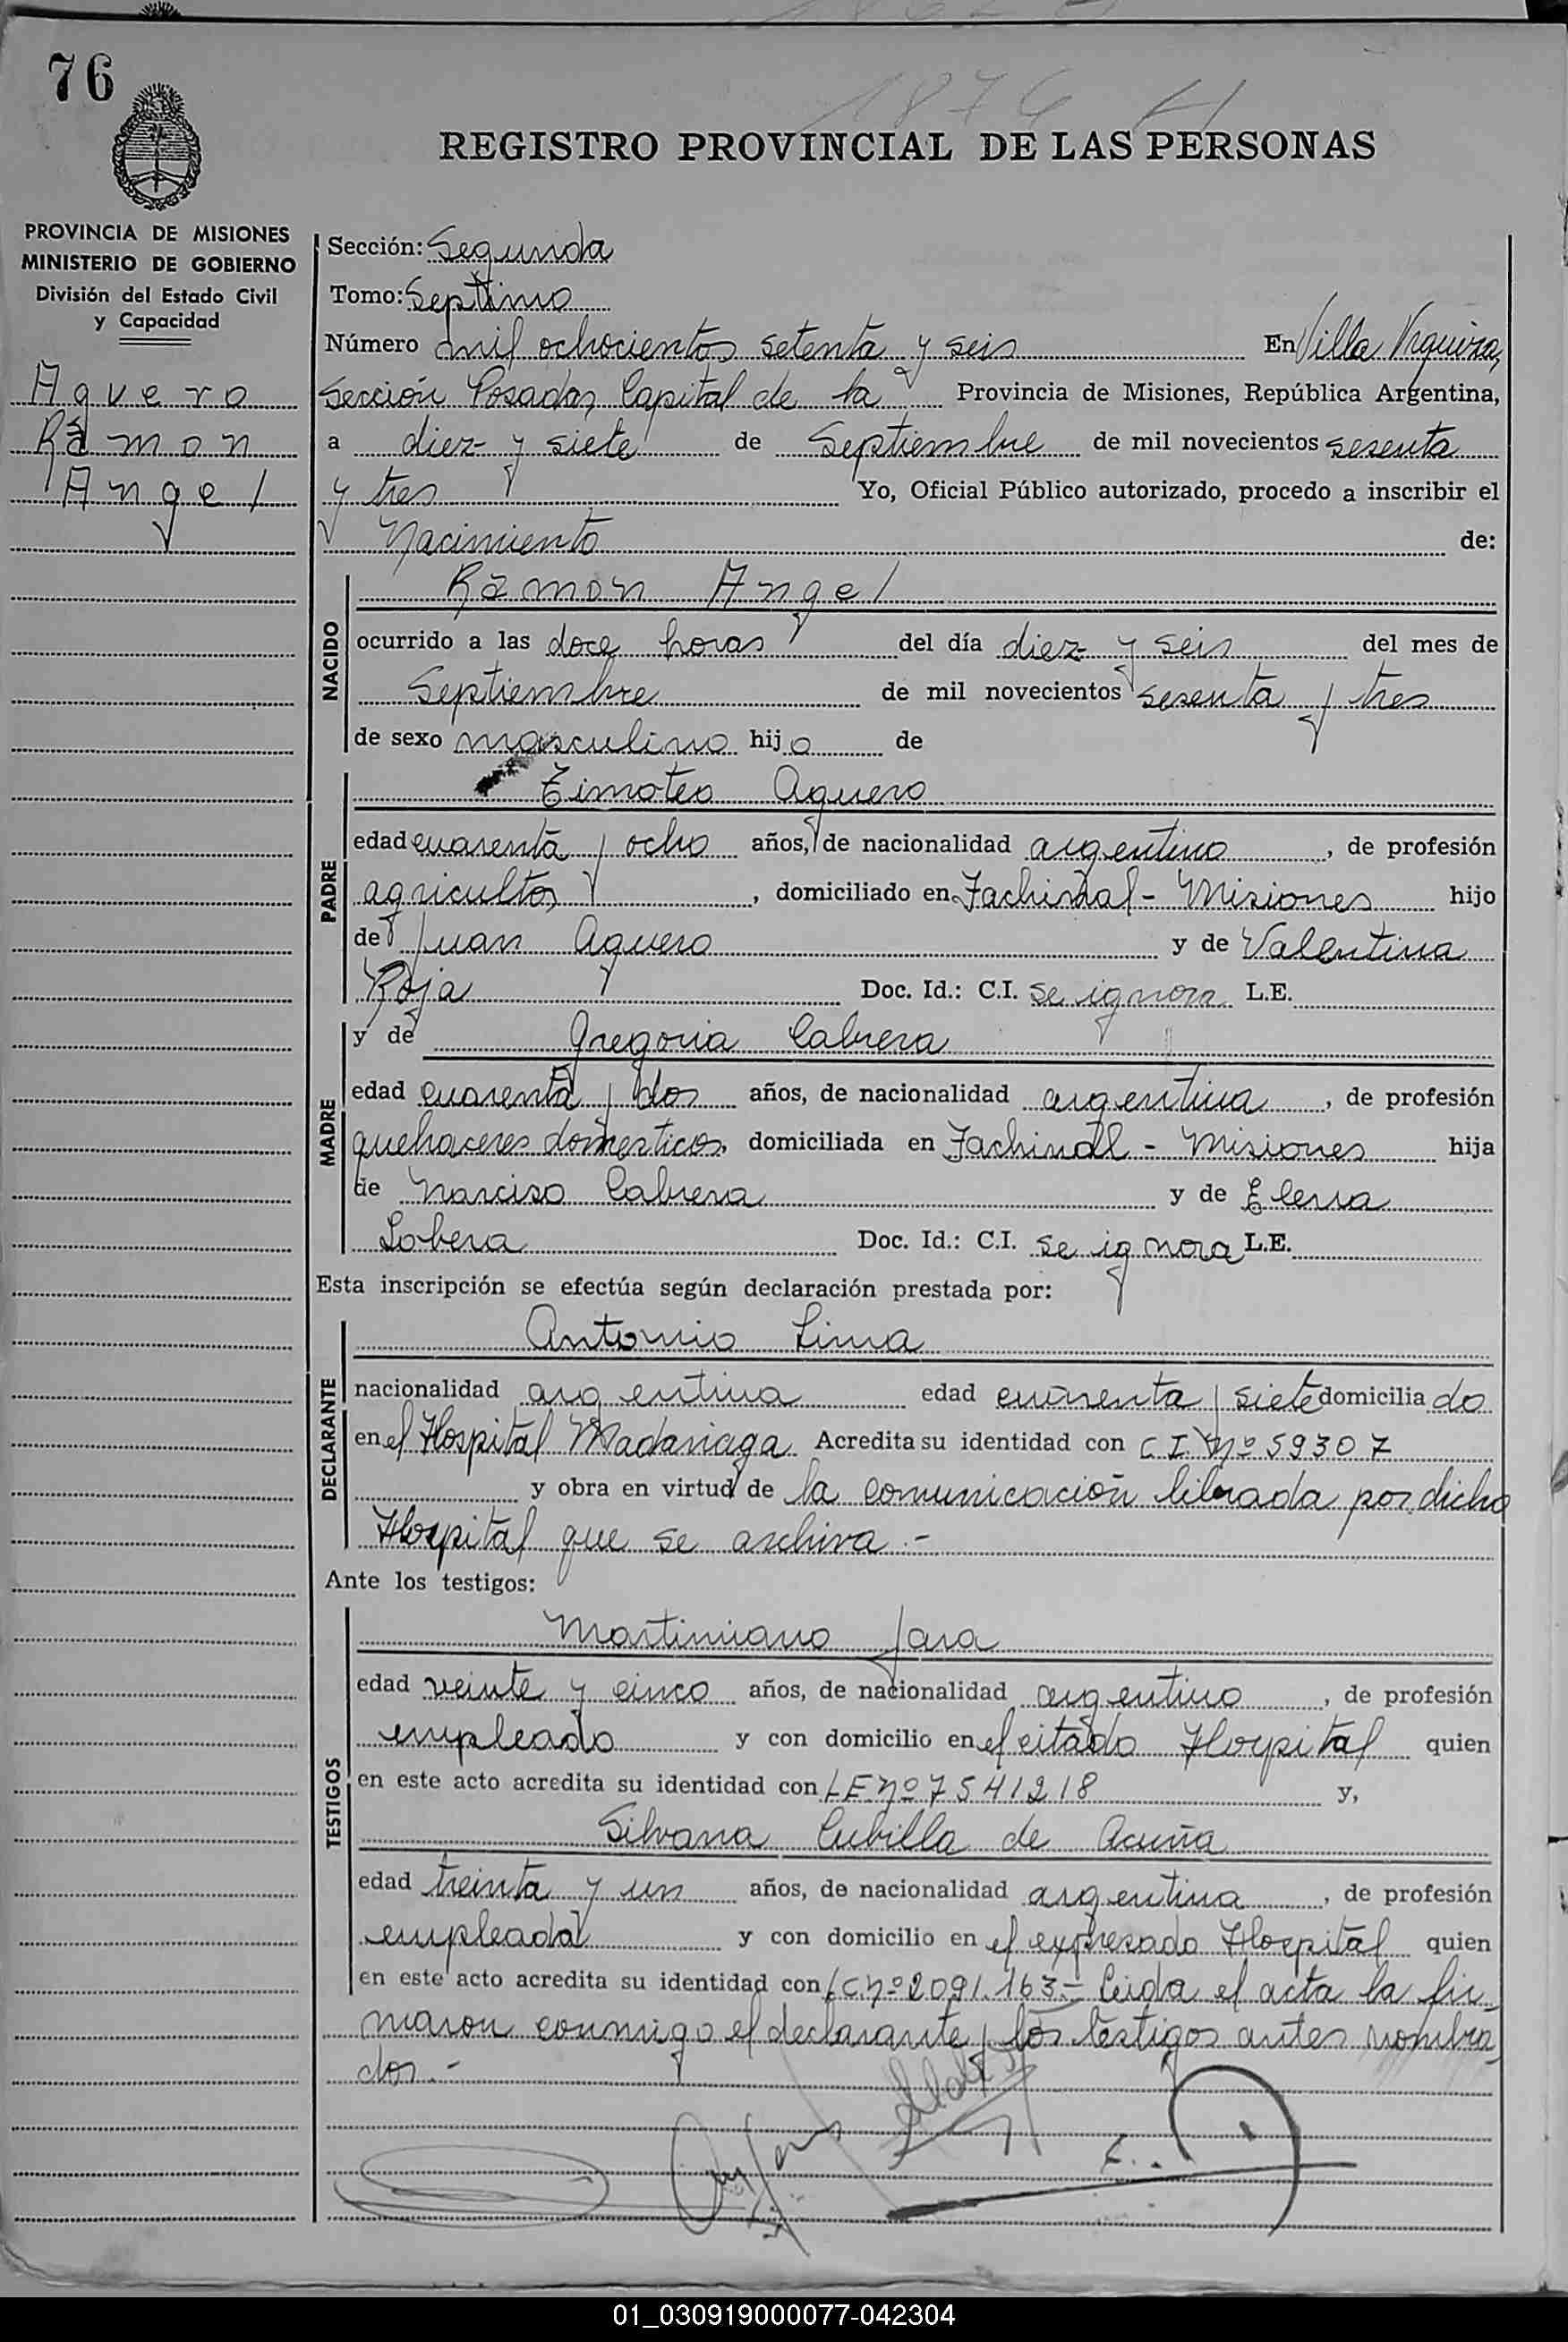 76
1876 H
REGISTRO PROVINCIAL DE LAS PERSONAS
PROVINCIA DE MISIONES
MINISTERIO DE GOBIERNO
División del Estado Civil
y Capacidad
Aguero
Ramon
Angel
Sección: Segunda
Tomo: Septimo
Número mil ochocientos setenta y seis En Villa Urquiza,
Sección Posadas Capital de la Provincia de Misiones, República Argentina,
a diez y siete de Septiembre de mil novecientos sesenta
y tres Yo, Oficial Público autorizado, procedo a inscribir el
Nacimiento de:
NACIDO
Ramon Angel
ocurrido a las doce horas del día diez y seis del mes de
Septiembre de mil novecientos sesenta y tres
de sexo masculino hijo de
PADRE
Timoteo Aguero
edad cuarenta y ocho años, de nacionalidad argentino, de profesión
agricultor, domiciliado en Fachinal - Misiones hijo
de Juan Aguero y de Valentina
Roja Doc. Id.: C.I. se ignora L.E.
MADRE
y de Gregoria Cabrera
edad cuarenta y dos años, de nacionalidad argentina, de profesión
quehaceres domesticos, domiciliada en Fachinal - Misiones hija
de Narciso Cabrera y de Elena
Lobera Doc. Id.: C.I. se ignora L.E.
Esta inscripción se efectúa según declaración prestada por:
DECLARANTE
Antonio Lima
nacionalidad argentina edad cuarenta y siete domiciliado
en el Hospital Madariaga Acredita su identidad con C.I. Nº 59307
y obra en virtud de la comunicación librada por dicho
Hospital que se archiva.-
Ante los testigos:
TESTIGOS
Martiniano Jara
edad veinte y cinco años, de nacionalidad argentino, de profesión
empleado y con domicilio en el citado Hospital quien
en este acto acredita su identidad con LE Nº 7541218 y,
Silvana Cubilla de Acuña
edad treinta y un años, de nacionalidad argentina, de profesión
empleada y con domicilio en el expresado Hospital quien
en este acto acredita su identidad con LC. Nº 2091.163.- Leida el acta la fir-
maron conmigo el declarante y los testigos antes nombra-
dos.-
01_030919000077-042304